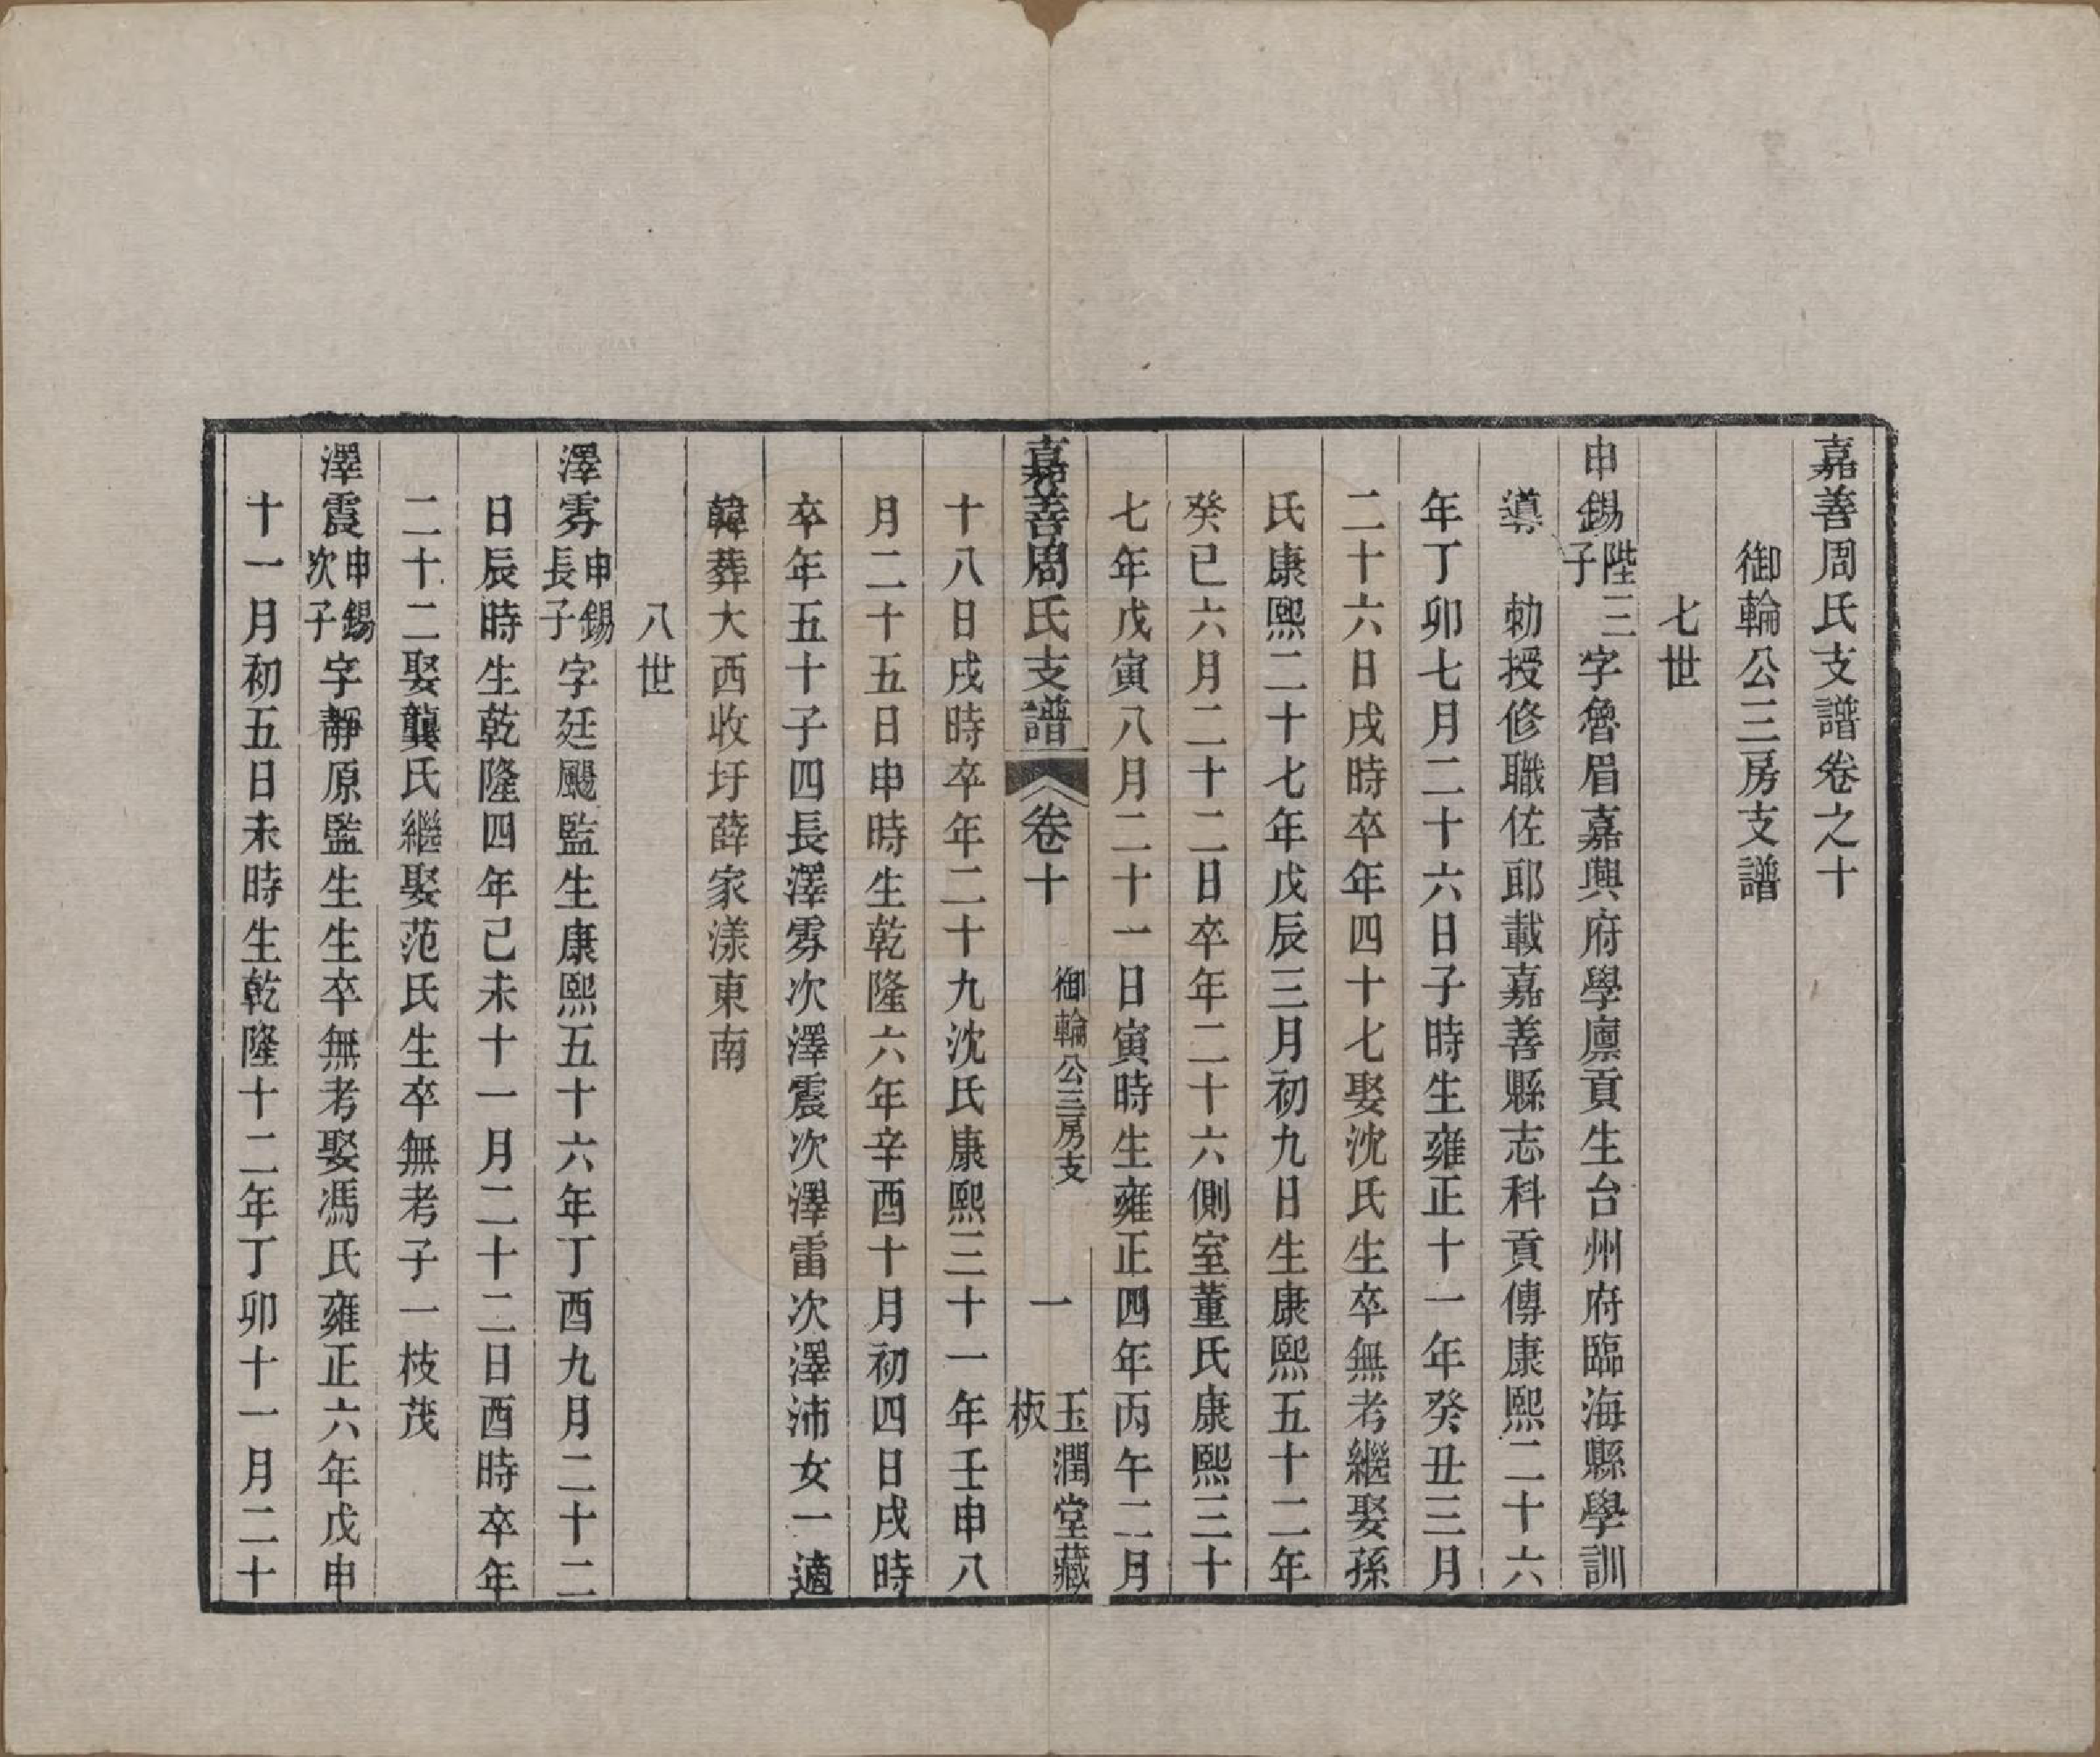 嘉善周氏支譜卷之十
御輪公三房支譜
七世
申錫陛三子字魯眉嘉興府學廩貢生台州府臨海縣學訓
導　勅授修職佐郎載嘉善縣志科貢傳康熙二十六
年丁卯七月二十六日子時生雍正十一年癸丑三月
二十六日戌時卒年四十七娶沈氏生卒無考繼娶孫
氏康熙二十七年戊辰三月初九日生康熙五十二年
癸巳六月二十二日卒年二十六側室董氏康熙三十
七年戊寅八月二十一日寅時生雍正四年丙午二月
嘉善周氏支譜　卷十　御輪公三房支　一　玉潤堂藏板
十八日戌時卒年二十九沈氏康熙三十一年壬申八
月二十五日申時生乾隆六年辛酉十月初四日戌時
卒年五十子四長澤雱次澤震次澤雷次澤沛女一適
韓葬大西收圩薛家漾東南
八世
澤雱申錫長子字廷颺監生康熙五十六年丁酉九月二十二
日辰時生乾隆四年己未十一月二十二日酉時卒年
二十二娶龔氏繼娶范氏生卒無考子一枝茂
澤震申錫次子字靜原監生生卒無考娶馮氏雍正六年戊申
十一月初五日未時生乾隆十二年丁卯十一月二十